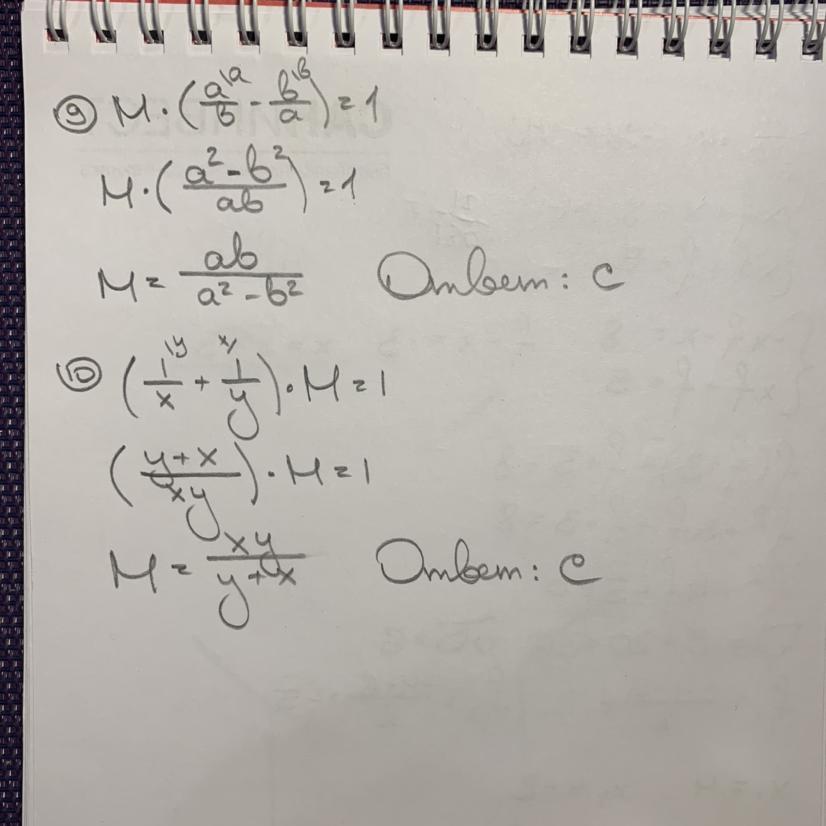 ⑨ M · (a\a/b - b\b/a) = 1
M · (a² - b²/ab) = 1
M = ab/a² - b² Ответ: C
⑩ (1\y/x + 1 x/ /y) · M = 1
(y + x/xy) · M = 1
M = xy/y + x Ответ: C